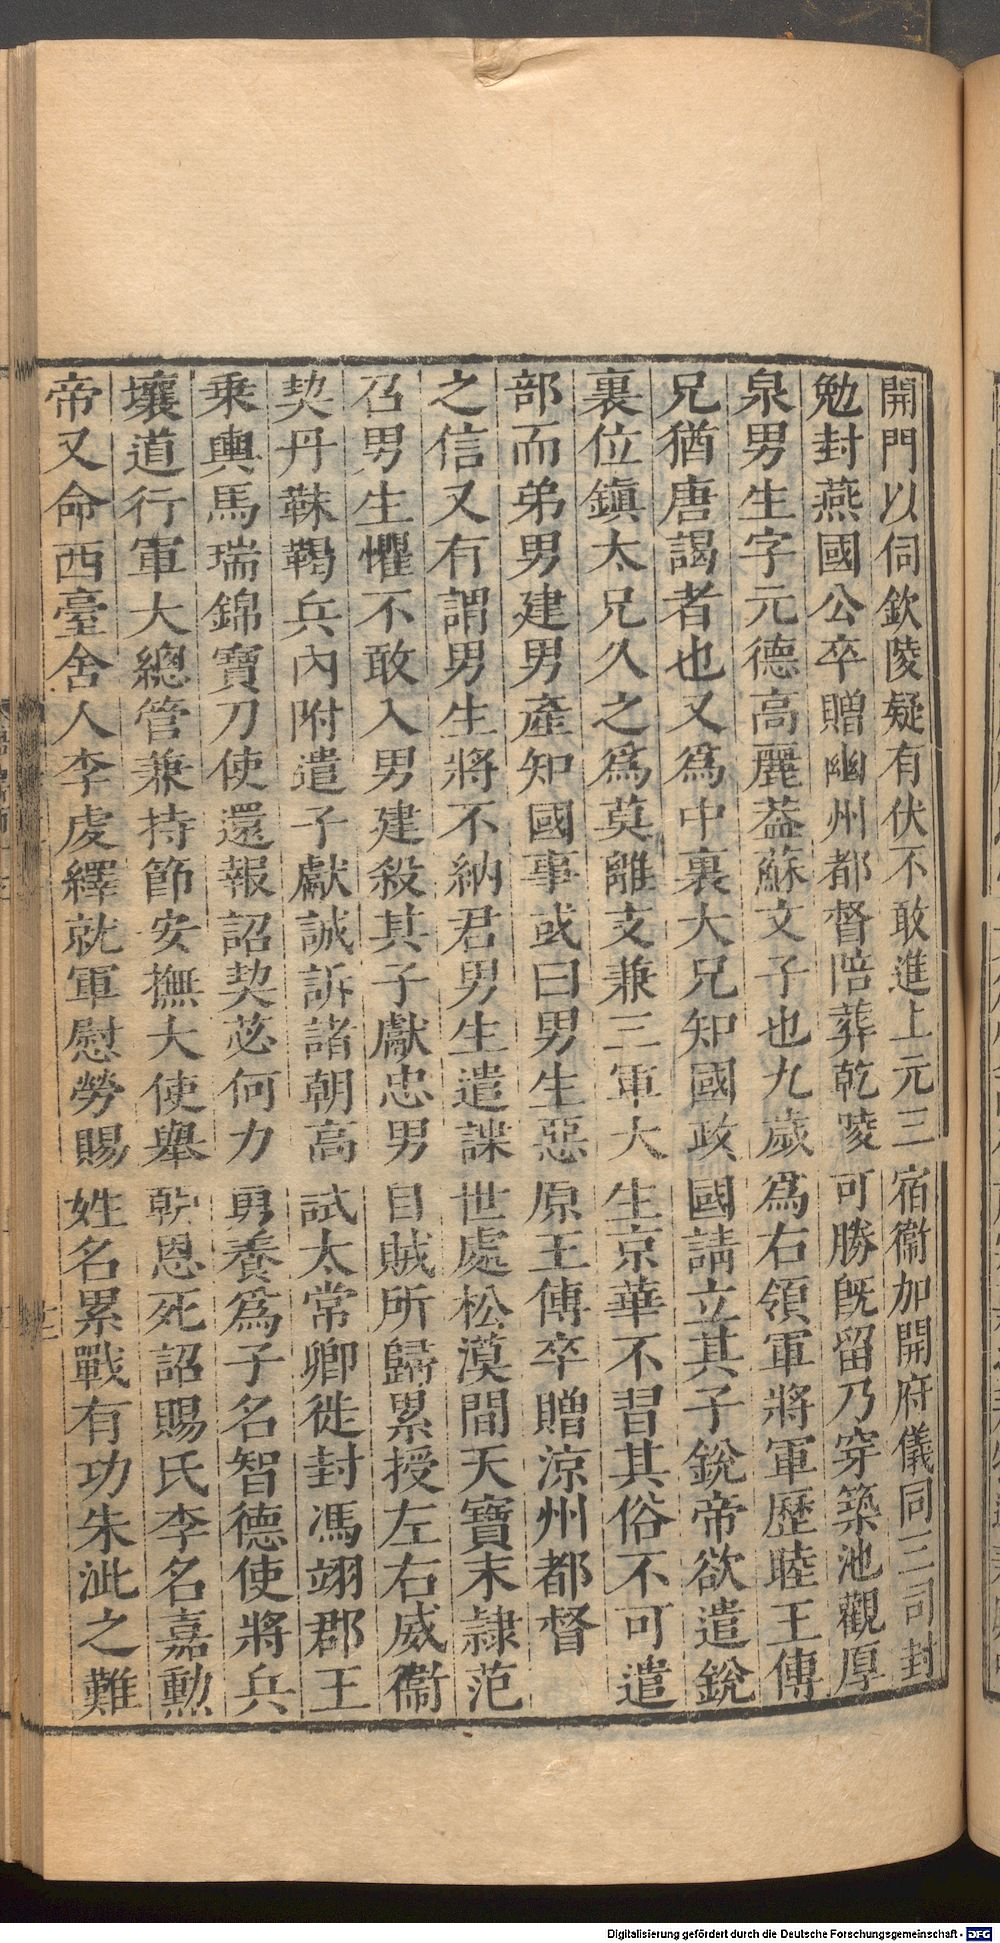 開門以伺欽陵疑有伏不敢進上元三宿衞加開府儀同三司封
勉封燕國公卒贈幽州都督陪葬乾陵可勝旣留乃穿築池觀厚
泉男生字元德高麗葢蘇文子也九歲爲右領軍將軍歷睦王傅
兄猶唐謁者也又爲中裏大兄知國政國請立其子銳帝欲遣銳
裏位鎭太兄久之爲莫離支兼三軍大生京華不習其俗不可遣
部而弟男建男產知國事或曰男生惡原王傅卒贈涼州都督
之信又有謂男生將不納君男生遣諜世處松漠間天寶末隷范
召男生懼不敢入男建殺其子獻忠男目賊所歸累授左右威衞
契丹靺鞨兵內附遣子獻誠訴諸朝高試太常卿徙封馮翊郡王
乗輿馬瑞錦寶刀使還報詔契苾何力養爲子名智德使將兵
壤道行軍大總管兼持節安撫大使舉恩死詔賜氏李名嘉勲
帝又命西臺舍人李虔繹就軍慰勞賜姓名累戰有功朱泚之難
Digitalisierung gefördert durch die Deutsche Forschungsgemeinschaft - DFG